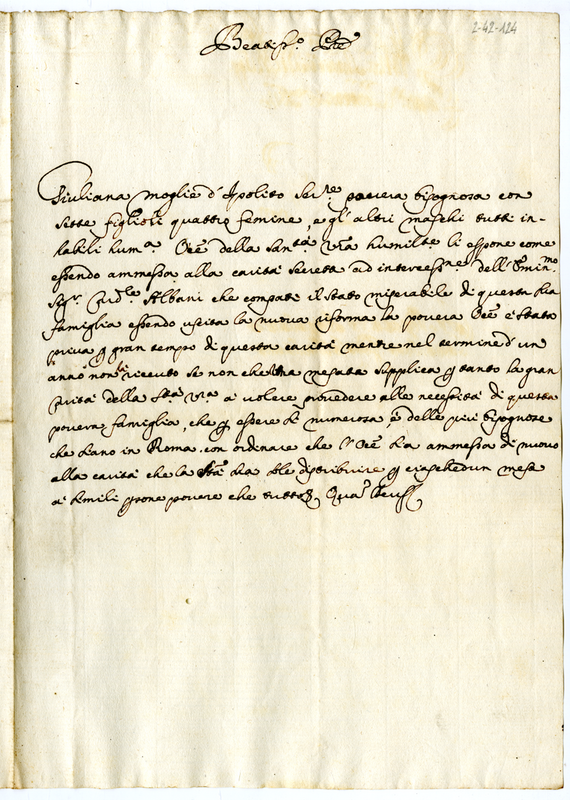 2-42-124
Beatiss.º Pre
Giuliana moglie d'Ipolito povera bisognosa con
sette figlioli quattro femine, e gl'altri maschi tutti in-
habili hum.ª Orē della San.tà Vrā humilte li espone come
essendo ammessa alla carità secreta ad intercess.ne dell'Emin.mo
Sig.r Albani che compatì il stato miserabile di questa sua
famiglia essendo uscita la nuova riforma la povera Orē è stata
priva p gran tempo di questa carità mentre nel termine d'un
anno non ha ricevuto se non che una mesata supplica p tanto la gran
pietà della S.tà V.ra à volere provedere alle necessità di questa
povera famiglia, che p essere sì numerosa, è delle più bisognose
che siano in Roma con ordinare che l'Orē sia ammessa di nuovo
alla carità che la S.tà Sua fà distribuire p ciaschedun mese
a simili psone povere che tutto Quā Deus